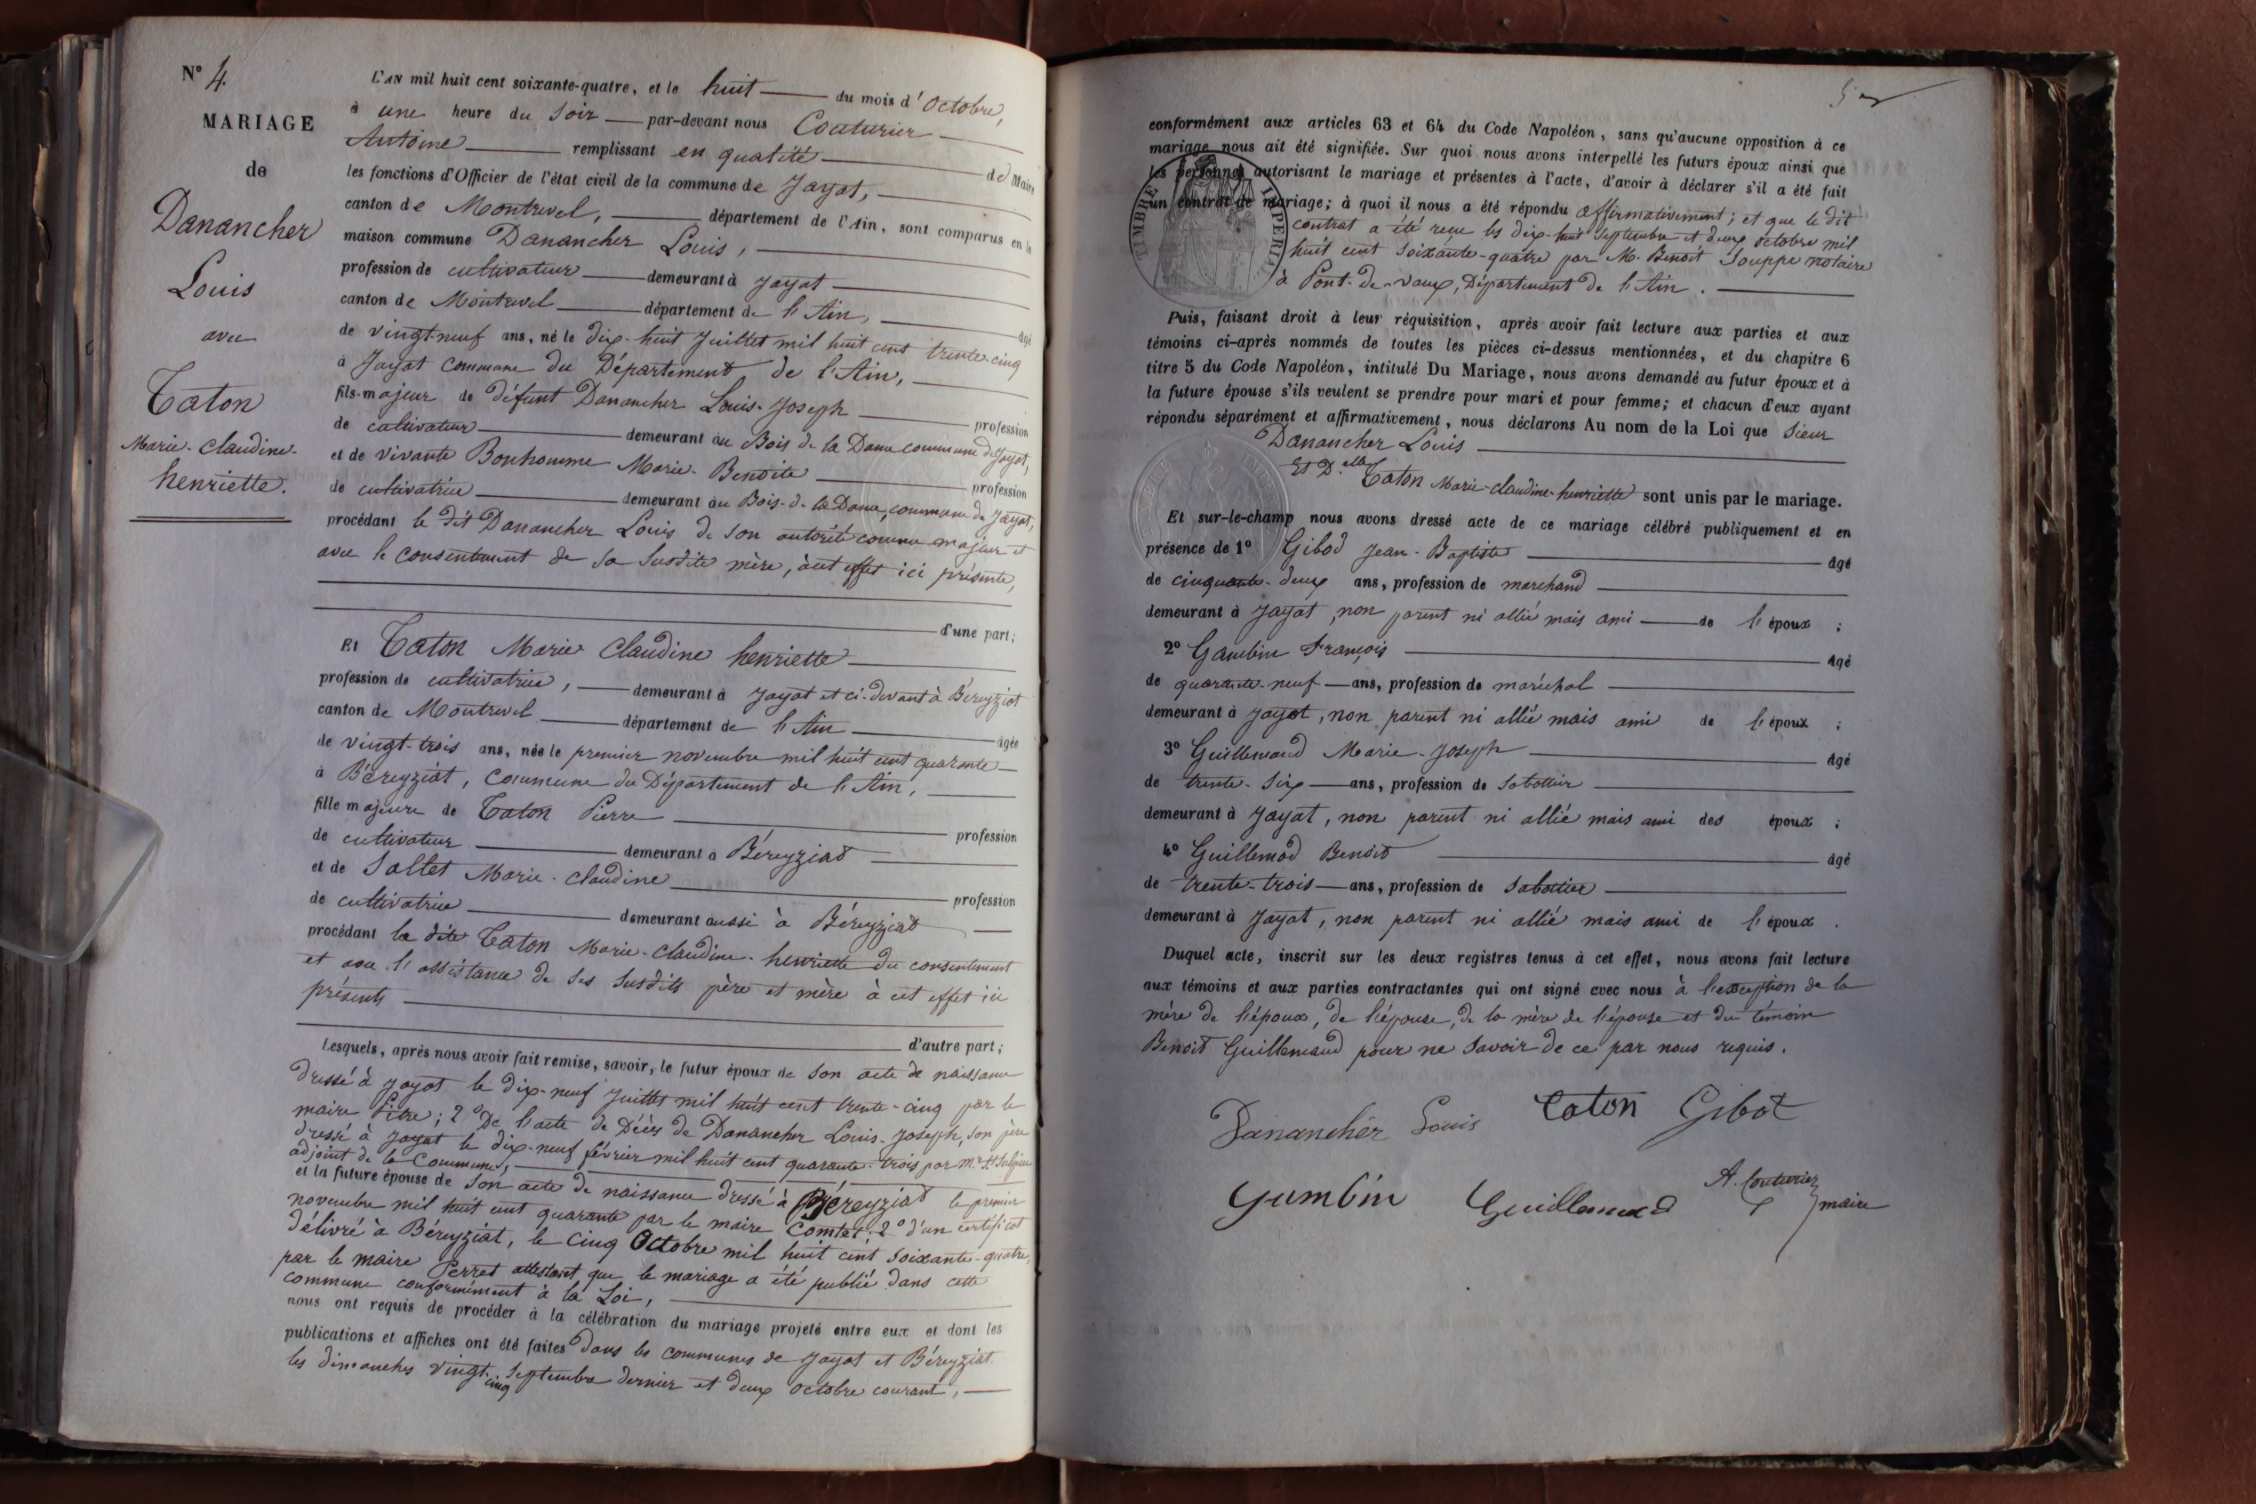 N° 4.
MARIAGE
de
Danancher
Louis
avec
Caton
Marie-claudine-
henriette.
L'AN mil huit cent soixante-quatre, et le huit du mois d'octobre,
à une heure du soir par-devant nous Couturier
Antoine remplissant en qualité de Maire
les fonctions d'Officier de l'état civil de la commune de Jayat,
canton de Montrevel, département de l'Ain, sont comparus en la
maison commune Danancher Louis,
profession de cultivateur demeurant à Jayat
canton de Montrevel département de l'Ain, âgé
de vingt-neuf ans, né le dix-huit Juillet mil huit cent trente-cinq
à Jayat commune du Département de l'Ain,
fils majeur de défunt Danancher Louis-Joseph profession
de cultivateur demeurant au Bois de la Dame commune de Jayat,
et de vivante Bonhomme Marie-Benoite profession
de cultivatrice demeurant au Bois-de-la Dame, commune de Jayat,
procédant le dit Danancher Louis de son autorité comme majeur et
avec le consentement de sa susdite mère, à cet effet ici présente,
d'une part;
Et Caton Marie Claudine henriette
profession de cultivatrice, demeurant à Jayat et ci-devant à Béreyziat
canton de Montrevel département de l'Ain âgée
de vingt-trois ans, née le premier novembre mil huit cent quarante
à Béreyziat, commune du Département de l'Ain,
fille majeure de Caton Pierre profession
de cultivateur demeurant à Béreyziat
et de Sallet Marie-Claudine profession
de cultivatrice demeurant aussi à Béreyziat
procédant la dite Caton Marie-Claudine-henriette du consentement
et avec l'assistance de ses susdits père et mère à cet effet ici
présents
d'autre part;
Lesquels, après nous avoir fait remise, savoir, le futur époux de son acte de naissance
dressé à Jayat le dix-neuf Juillet mil huit cent trente-cinq par le
maire ; 2° De l'acte de Décès de Danancher Louis-Joseph, son père
dressé à Jayat le dix-neuf février mil huit cent quarante-trois par Mr
adjoint de la Commune,
et la future épouse de son acte de naissance dressé à Béreyziat le premier
novembre mil huit cent quarante par le maire Comtet; 2° d'un certificat
délivré à Béreyziat, le cinq Octobre mil huit cent soixante-quatre,
par le maire Perret attestant que le mariage a été publié dans cette
commune conformément à la Loi,
nous ont requis de procéder à la célébration du mariage projeté entre eux et dont les
publications et affiches ont été faites dans les communes de Jayat et Béreyziat
les dimanches vingt-cinq Septembre dernier et deux octobre courant,
conformément aux articles 63 et 64 du Code Napoléon, sans qu'aucune opposition à ce
mariage nous ait été signifiée. Sur quoi nous avons interpellé les futurs époux ainsi que
les personnes autorisant le mariage et présentes à l'acte, d'avoir à déclarer s'il a été fait
un contrat de mariage; à quoi il nous a été répondu affirmativement; et que le dit
contrat a été reçu les dix-huit septembre et deux octobre mil
huit cent soixante-quatre par M. Benoît Souppe notaire
à Pont-de-vaux, Département de l'Ain.
TIMBRE IMPERIAL
Puis, faisant droit à leur réquisition, après avoir fait lecture aux parties et aux
témoins ci-après nommés de toutes les pièces ci-dessus mentionnées, et du chapitre 6
titre 5 du Code Napoléon, intitulé Du Mariage, nous avons demandé au futur époux et à
la future épouse s'ils veulent se prendre pour mari et pour femme; et chacun d'eux ayant
répondu séparément et affirmativement, nous déclarons Au nom de la Loi que Sieur
Danancher Louis
Et D.elle Caton Marie-claudine-henriette sont unis par le mariage.
Et sur-le-champ nous avons dressé acte de ce mariage célébré publiquement et en
présence de 1° Gibod Jean-Baptiste âgé
de cinquante-deux ans, profession de marchand
demeurant à Jayat, non parent ni allié mais ami de l'époux ;
2° Gambin François âgé
de quarante-neuf ans, profession de maréchal
demeurant à Jayat, non parent ni allié mais ami de l'époux ;
3° Guillemaud Marie-Joseph âgé
de trente-six ans, profession de sabotier
demeurant à Jayat, non parent ni allié mais ami des époux ;
4° Guillemod Benoit âgé
de trente-trois ans, profession de sabotier
demeurant à Jayat, non parent ni allié mais ami de l'époux .
Duquel acte, inscrit sur les deux registres tenus à cet effet, nous avons fait lecture
aux témoins et aux parties contractantes qui ont signé avec nous à l'exception de la
mère de l'époux, de l'épouse, de la mère de l'épouse et du témoin
Benoit Guillemaud pour ne savoir de ce par nous requis.
Danancher Louis Caton Gibot
Gumbin Guillemaud A. Couturier
maire